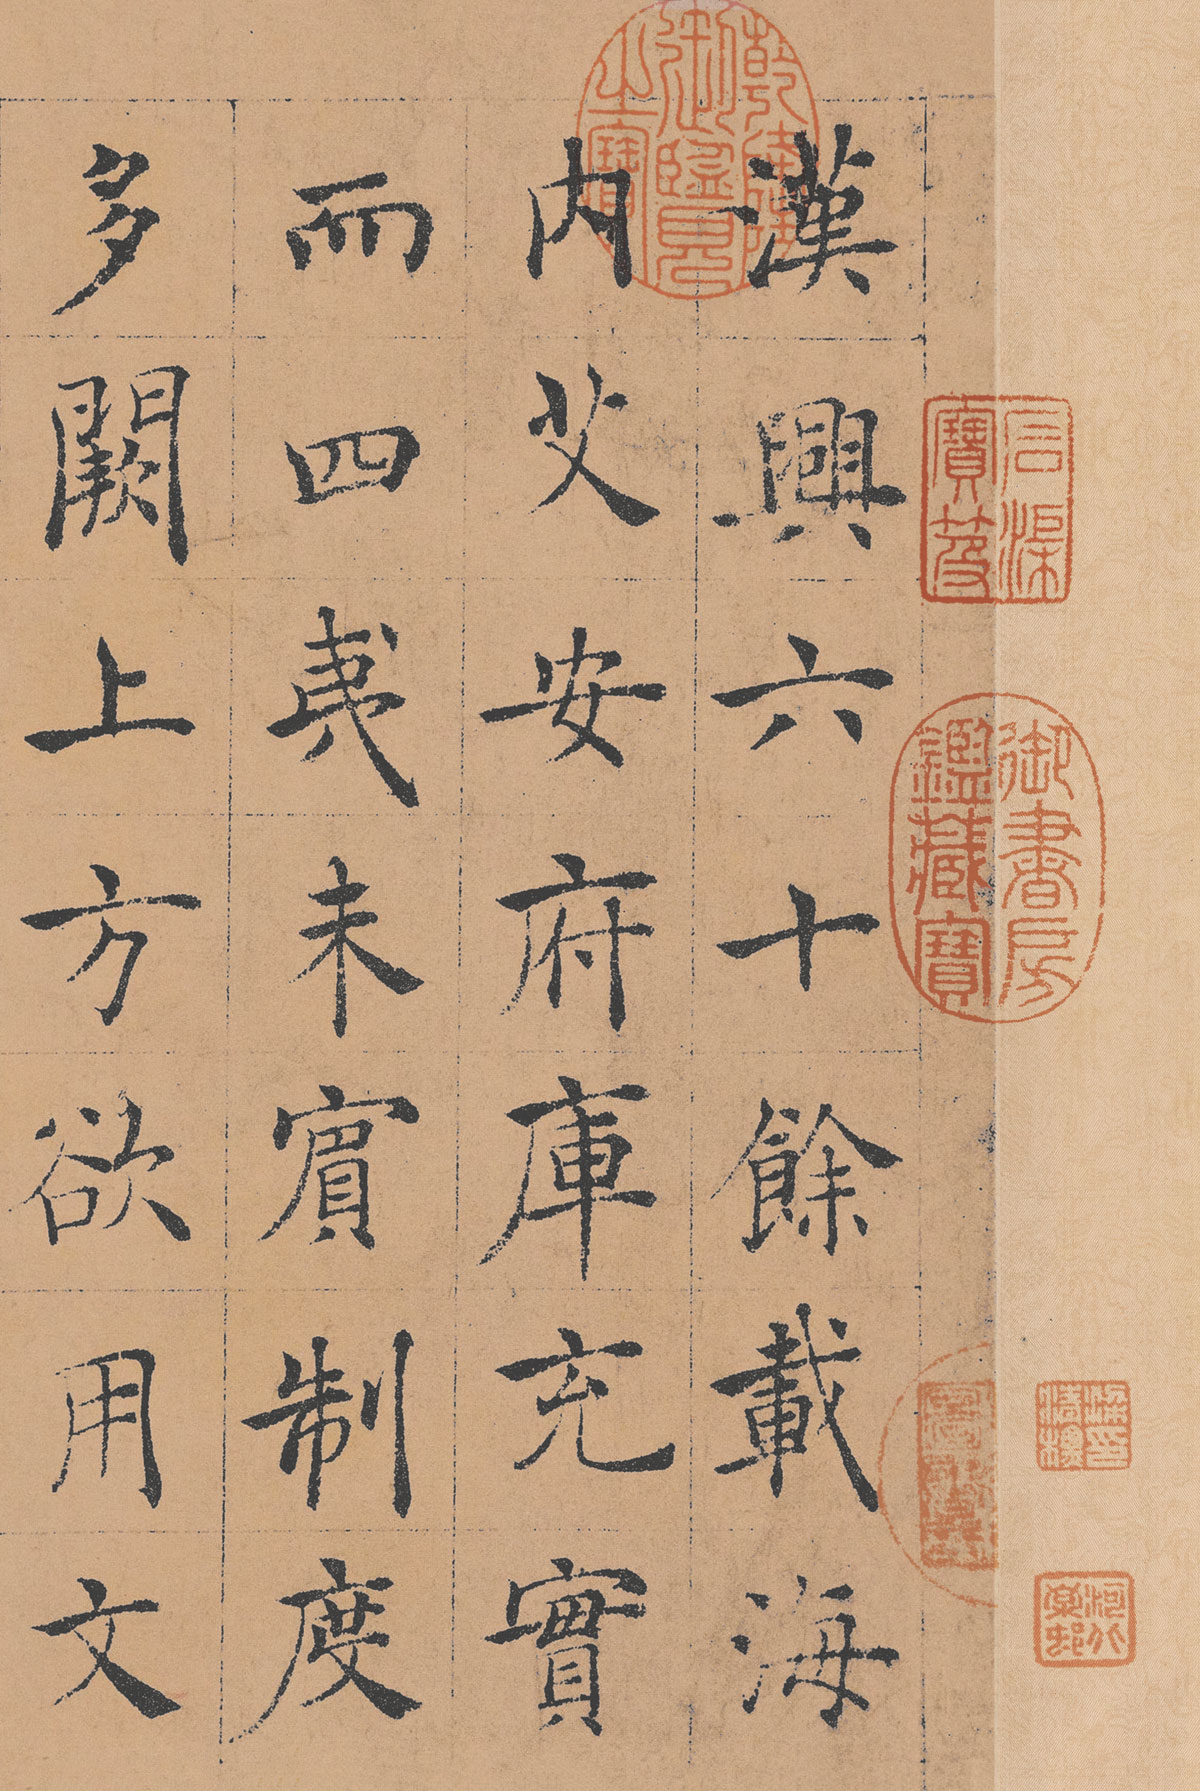 漢興六十餘載海
内艾安府庫充實
而四夷未賓制度
多闕上方欲用文
乾隆御覽之寶
石渠寶笈
御書房鑑藏寶